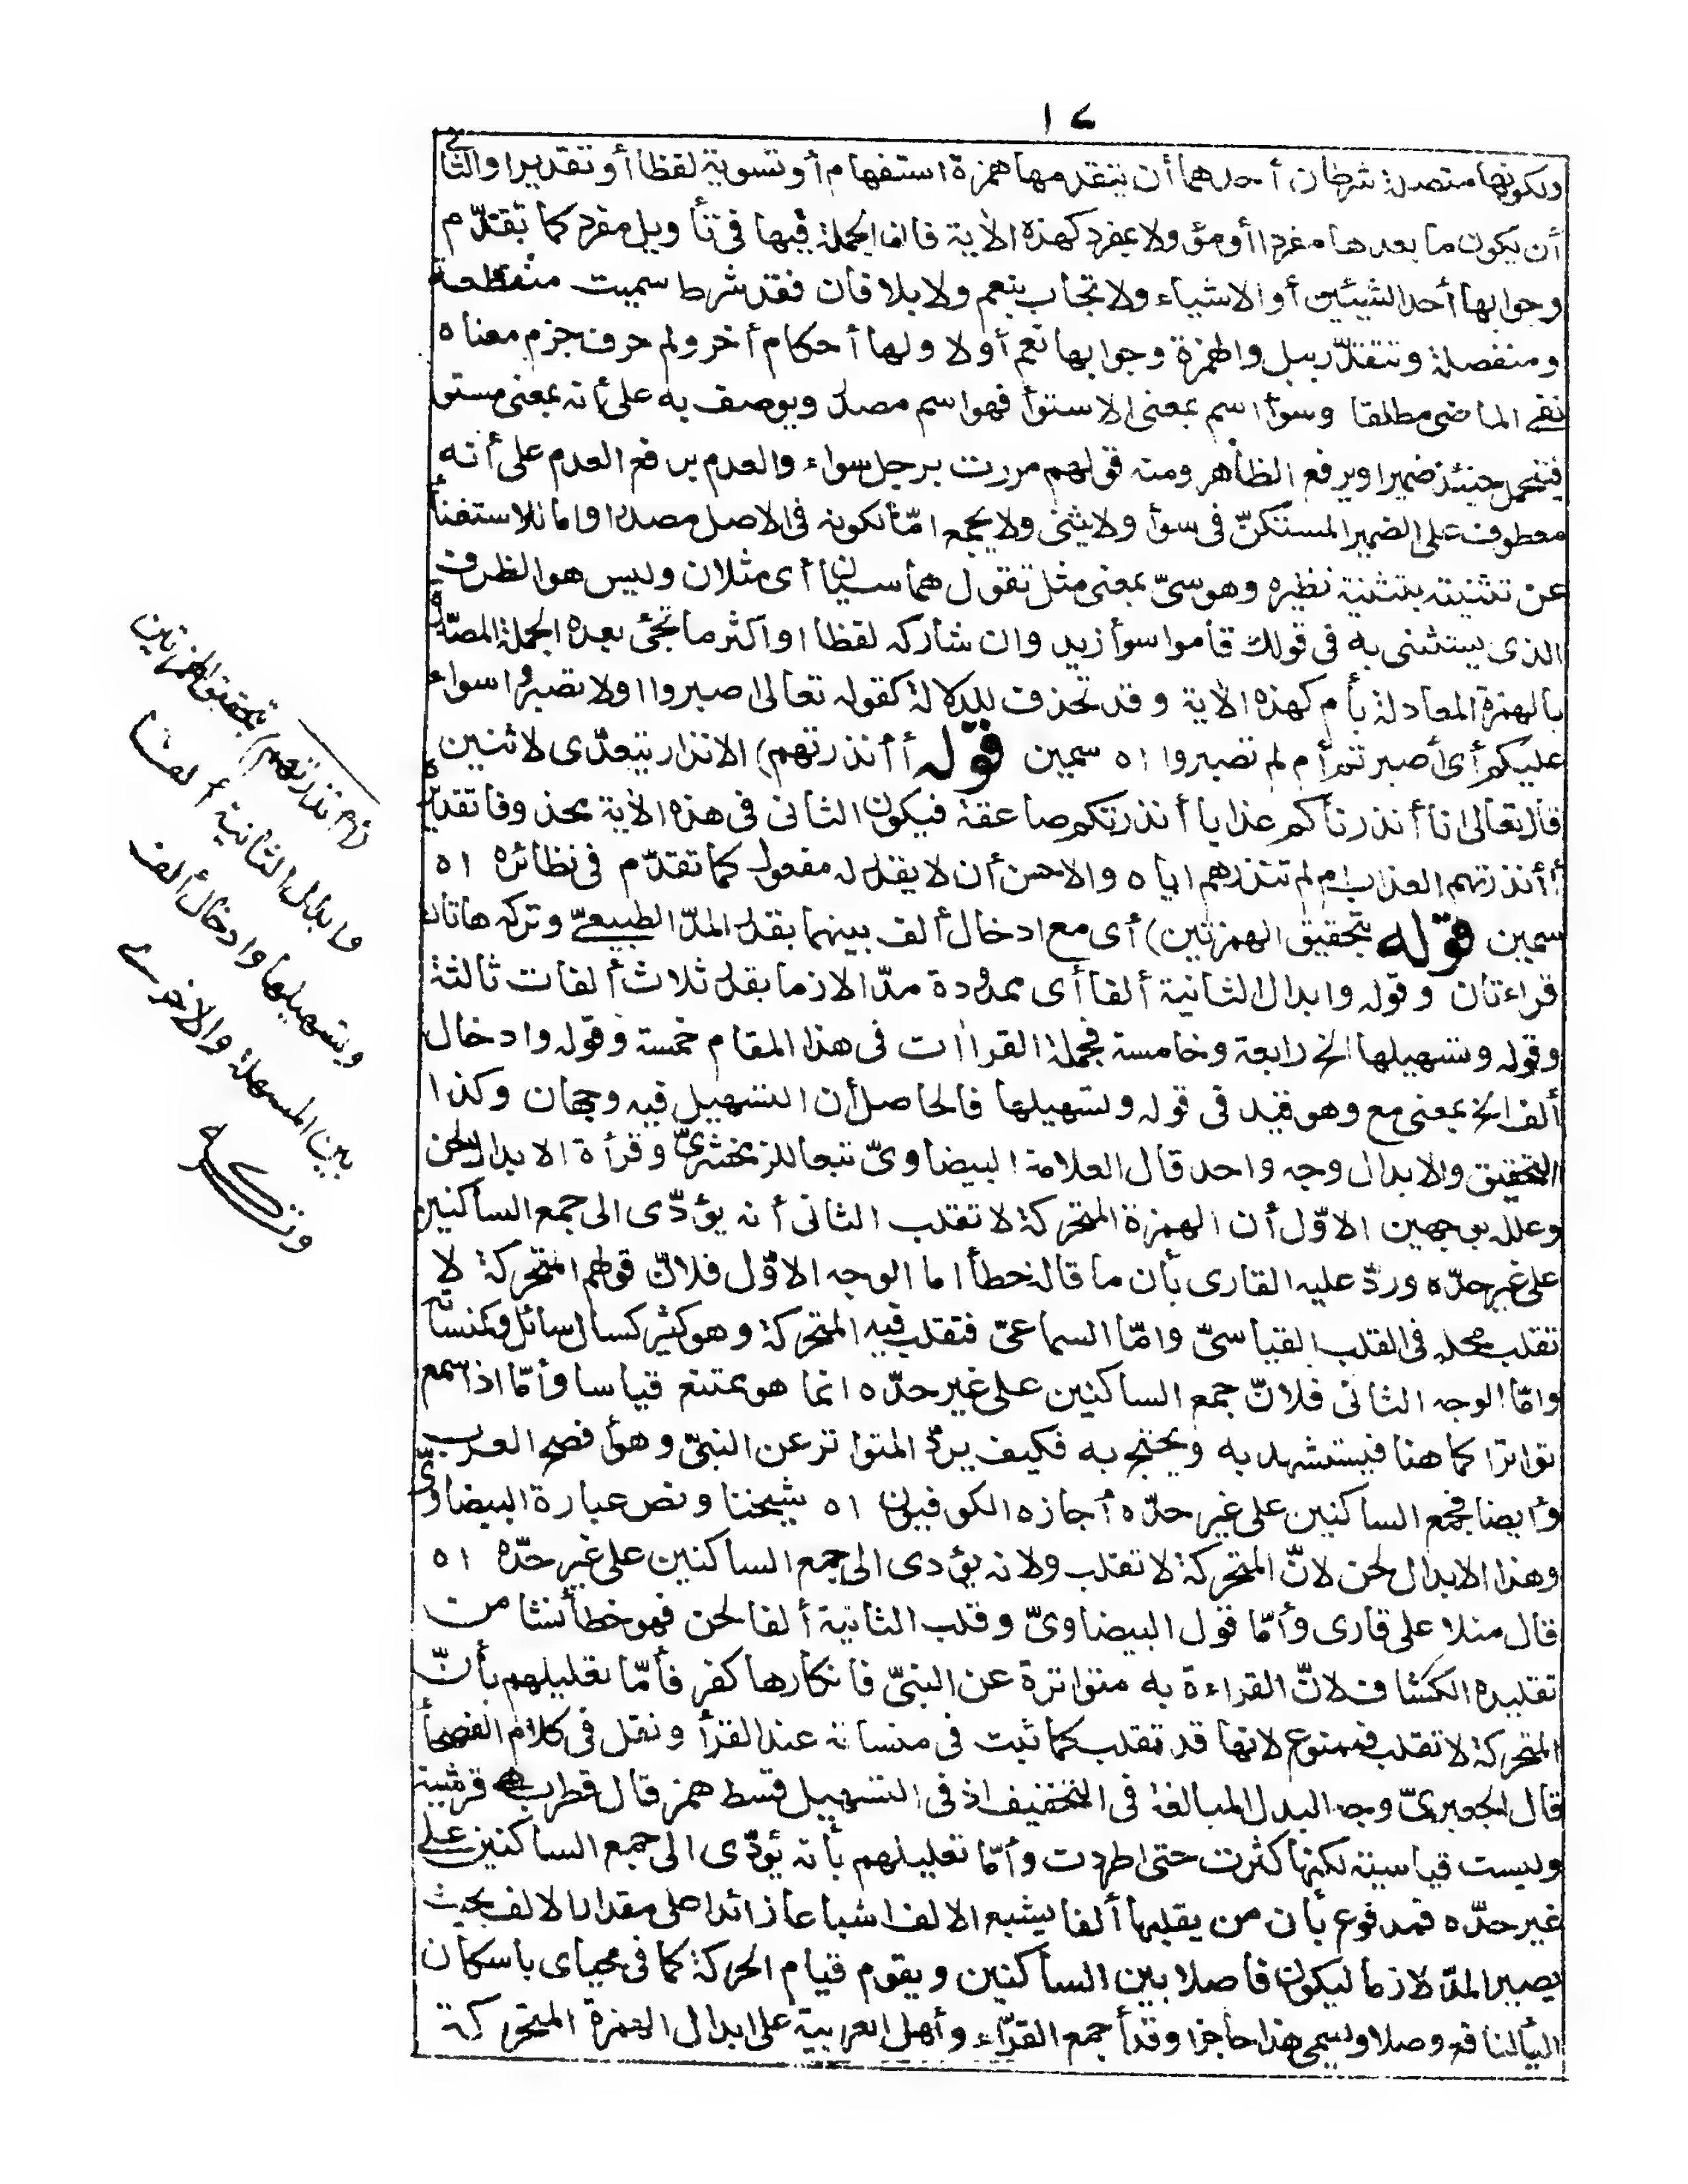 ١٧
ولكونها متصلة شرطان أحدهما أن يتقدمها همزة استفهام أو تسوية لفظا أو تقديرا والثاني
أن يكون ما بعدها مفردا أو مؤولا بمفرد كهذه الآية فان الجملة فيها في تأويل مفرد كما تقدّم
وجوابها أحد الشيئين أو الاشياء ولا تجاب بنعم ولا بلا فان فقد شرط سميت منقطعة
ومنفصلة وتتقدّر ببل والهمزة وجوابها نعم أو لا ولها أحكام أخر ولم حرف جزم معناه
نفي الماضي مطلقا وسوأ اسم بمعنى الاستوأ فهو اسم مصدر ويوصف به على أنه بمعنى مستو
فيتحمل حينئذ ضميرا ويرفع الظاهر ومنه قولهم مررت برجل سواء والعدم برفع العدم على أنه
معطوف على الضمير المستكنّ في سوأ ولا يثنى ولا يجمع امّا لكونه في الاصل مصدرا واما للاستغنأ
عن تثنيته بتثنية نظيره وهو سىّ بمعنى مثل تقول هما سيان أى مثلان وليس هو الظرف
الذى يستثنى به في قولك قاموا سوأ زيد وان شاركه لفظا واكثر ما تجئ بعده الجملة المصدّرة
بالهمزة المعادلة بأم كهذه الآية وقد تحذف للدلالة كقوله تعالى اصبروا اولا تصبروا سواء
عليكم أى أصبرتم أم لم تصبروا اه سمين قوله أأنذرتهم) الانذار يتعدّى لاثنين
قال تعالى انا أنذرناكم عذابا أنذرتكم صاعقة فيكون الثاني في هذه الآية محذوفا تقديره
أأنذرتهم العذاب أم لم تنذرهم اياه والاحسن أن لا يقدر له مفعول كما تقدّم في نظائره اه
سمين قوله بتحقيق الهمزتين) أى مع ادخال ألف بينهما بقدر المدّ الطبيعىّ وتركه هاتان
قراءتان وقوله وابدال الثانية ألفا أى ممدودة مدّا لازما بقدر ثلاث ألفات ثالثة
وقوله وتسهيلها الخ رابعة وخامسة فجملة القراات في هذا المقام خمسة وقوله وادخال
ألف الخ بمعنى مع وهو قيد في قوله وتسهيلها فالحاصل أن التسهيل فيه وجهان وكذا
التحقيق والابدال وجه واحد قال العلامة البيضاوىّ تبعا للزمخشرىّ وقرأة الابدال لحن
وعلله بوجهين الاوّل أن الهمزة المتحركة لا تقلب الثانى أنه يؤدّى الى جمع الساكنين
على غير حدّه وردّ عليه القارى بأن ما قاله خطأ اما الوجه الاوّل فلانّ قولهم المتحركة لا
تقلب محله في القلب القياسىّ وامّا السماعىّ فتقلب فيه المتحركة وهو كثير كسال سائل وكمنسأته
وامّا الوجه الثانى فلانّ جمع الساكنين على غير حدّه انما هو يمتنع قياسا وأمّا اذا سمع
تواترا كما هنا فيستشهد به ويحتج به فكيف يردّ المتواتر عن النبىّ وهو أفصح العرب
وأيضا فجمع الساكنين على غير حدّه أجازه الكوفيون اه شيخنا ونص عبارة البيضاوىّ
وهذا الابدال لحن لانّ المتحركة لا تقلب ولانه يؤدى الى جمع الساكنين على غير حدّه اه
قال منلا على قارى وأمّا قول البيضاوىّ وقلب الثانية ألفا لحن فهو خطأ نشا من
تقليده الكشاف لانّ القراءة به متواترة عن النبىّ فانكارها كفر فأمّا تعليلهم بأنّ
المتحركة لا تقلب فممنوع لانها قد تقلب كما ثبت في منساته عند القرأ ونقل في كلام الفصحأ
قال الجعبرىّ وجه البدل المبالغة في التخفيف اذ في التسهيل قسط همز قال قطرب قرشية
وليست قياسية لكنها كثرت حتى اطردت وأمّا تعليلهم بأنه يؤدّى الى جمع الساكنين على
غير حدّه فمدفوع بأن من يقلبها ألفا يشبع الالف اشباعا زائدا على مقدار الالف بحيث
يصير المدّ لازما ليكون فاصلا بين الساكنين ويقوم قيام الحركة كما في محياى باسكان
اليأ لنافع وصلا ويسمى هذا حاجزا وقد أجمع القرّاء وأهل العربية على ابدال الهمزة المتحركة
(أم نذرتهم) بتحقيق الهمزتين
وابدال الثانية ألفا
وتسهيلها وادخال ألف
بين المسهلة والاخرى
وتركه